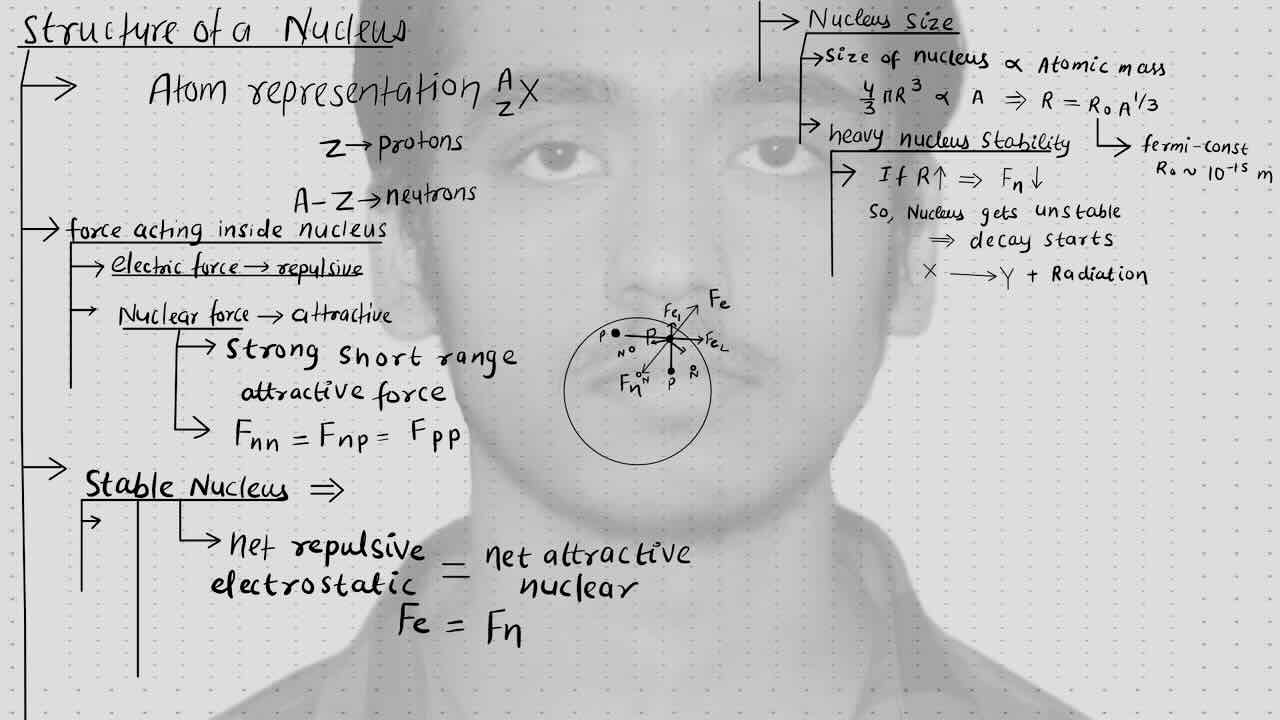 Structure of a Nucleus
Atom representation ᴬ_Z X
Z → protons
A-Z → neutrons
force acting inside nucleus
electric force → repulsive
Nuclear force → attractive
Strong short range
attractive force
Fnn = Fnp = Fpp
Stable Nucleus ⇒
net repulsive = net attractive
electrostatic nuclear
Fe = Fn
P P Fe₁ Fe
Fe₂
N
Fn N P N
Nucleus Size
Size of nucleus ∝ Atomic mass
4/3 πR³ ∝ A ⇒ R = R₀A^1/3
fermi-const
R₀ ~ 10⁻¹⁵ m
heavy nucleus stability
If R↑ ⇒ Fn↓
So, Nucleus gets unstable
⇒ decay starts
X → Y + Radiation